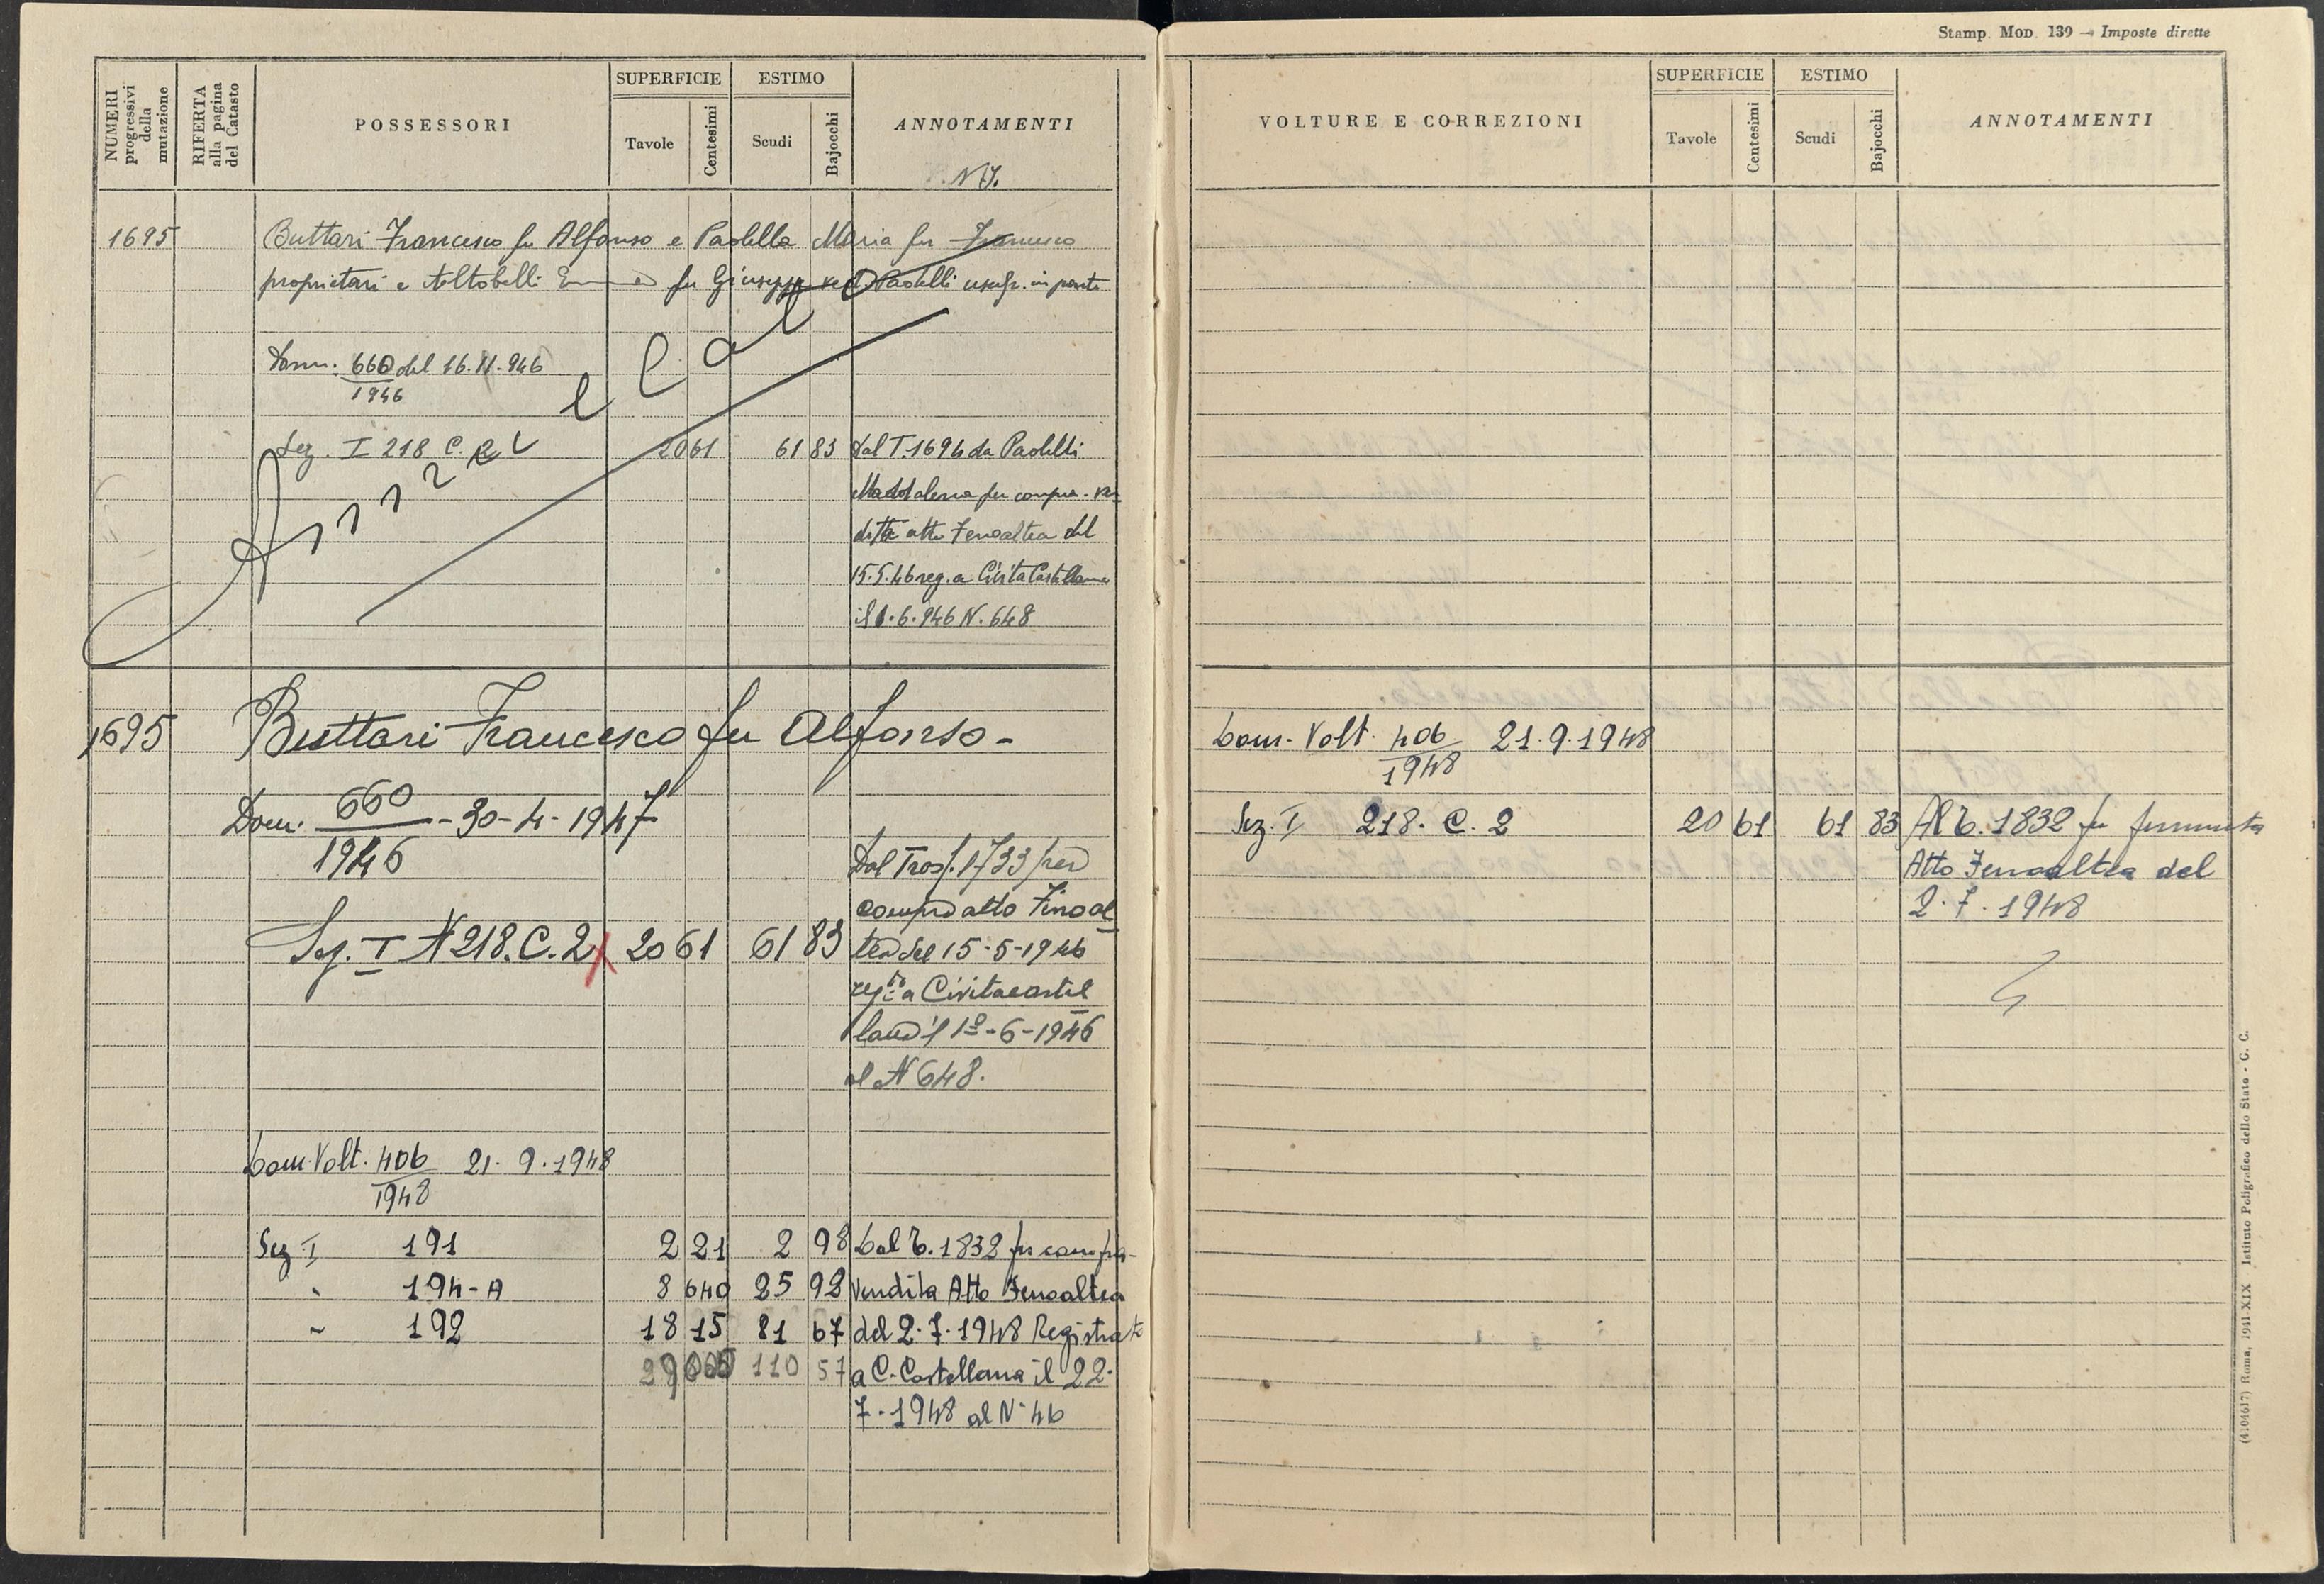 NUMERI progressivi della mutazione
RIFERTA alla pagina del Catasto
POSSESSORI
SUPERFICIE
Tavole
Centesimi
ESTIMO
Scudi
Bajocchi
ANNOTAMENTI
1695
Buttari Francesco fu Alfonso e Paolella Maria fu Francesco
proprietari e Altobelli fu Giuseppe ved. Paolelli usufr. in parte
Dom. 660 del 16.11.946
1946
Sez. I 218 C. 2 20 61 61 83 dal T. 1694 da Paolelli
Maddalena per compra-ven
dita atto Fenoaltea del
15.5.46 reg. a Civita Castellana
il 1.6.946 N. 648
Annullato
1695 Buttari Francesco fu Alfonso -
Dom. 660 - 30-4-1947
1946
Dal Trasf. 1733 per
compra atto Finoal
Sez. I N 218. C. 2 20 61 61 83 tea del 15-5-1946
reg.to a Civitacastel
lana il 1º-6-1946
al N 648.
Dom. Volt. 406 21.9.1948
1948
Sez I 191 2 21 2 98 Dal T. 1832 per compra-
" 194-A 8 640 25 92 vendita Atto Fenoaltea
" 192 18 15 81 67 del 2.7.1948 Registrat
110 57 a C. Castellana il 22.
7.1948 al N. 46
Stamp. Mod. 139 — Imposte dirette
VOLTURE E CORREZIONI
SUPERFICIE
Tavole
Centesimi
ESTIMO
Scudi
Bajocchi
ANNOTAMENTI
Dom. Volt. 406 21.9.1948
1948
Sez. I 218. C. 2 20 61 61 83 Al T. 1832 per permuta
Atto Fenoaltea del
2.7.1948
(4104617) Roma, 1941-XIX Istituto Poligrafico dello Stato - C. C.